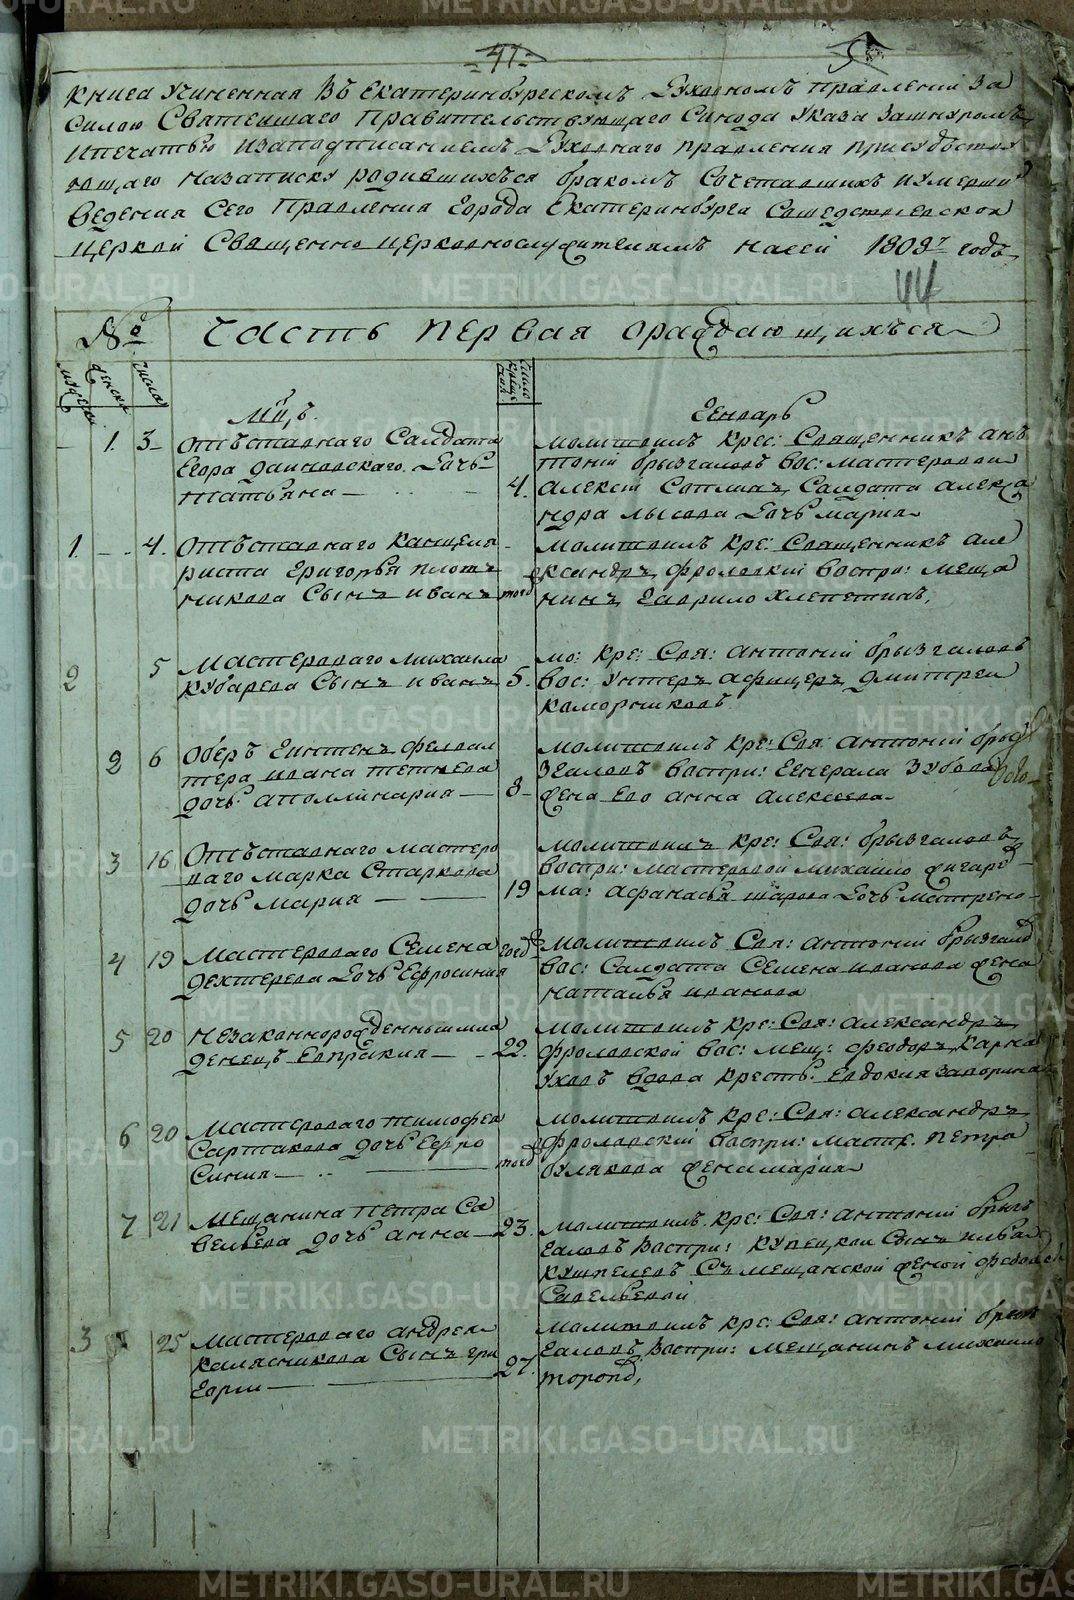 METRIKI.GASO-URAL.RU
41
5
книга учиненная въ Екатеринбургскомъ духовномъ правлении за
силою Святеишаго Правительствующаго Синода указа зашнуромъ
ипечатью изаподписаниемъ духовнаго правления
назаписку родившихъся бракомъ сочетавшихъ иумерши
ведения сего Правления города Екатеринбурга
церкви Священно церковнослужителямъ насеи 1809 годъ
44
№ Часть первая ораждающихъся
мужеска женска числа
Мцъ Генварь
1. 3 отъставнаго Салдата
Егора дочь
татьяна 4.
молитвилъ крес: Священникъ ан
тоний брызгаловъ вос: мастеровои
алексий Салдата алекса
ндра лысова дочь мария
1 4. отъставнаго канцеля
риста григорья плот
никова Сынъ иванъ тогд
молитвилъ кре: Священникъ але
ксандръ фроловский воспри: меща
нинъ гаврило
2 5 мастероваго михаила
кубарева Сынъ иванъ 5.
мо: кре: Свя: антоний брызгаловъ
вос: унтеръ афицеръ дмитреи
каморниковъ
2 6 Оберъ фелдал
шера ивана
дочь аполлинария 8
молитвилъ кре: Свя: антоний бры
згаловъ воспри: генерала зубова
жена его анна алексеева
3 16 Отъставнаго мастеро
ваго марка Старкова
дочь мария 19
молитвилъ кре: Свя: брызгаловъ
воспри: мастеровой михаило
ма: афанасья дочь матрено
4 19 мастероваго Семена
дехтерева дочь Ефросиния тогд
молитвилъ Свя: антоний брызгалов
вос: Салдата Семена иванова жена
наталья иванова
5 20 незаконнорожденный мла
денецъ Евпракия 22.
молитвилъ кре: Свя: александръ
фроловской вос: мещ: феодоръ карна
уховъ вдова кресть: Евдокия
6 20 мастероваго тимофея
Сартакова дочь Ефро
синия тогд
молитвилъ кре: Свя: александръ
фроловский воспри: масте. петра
кулякова жена мария
7 21 мещанина петра Са
вельева дочь анна 23.
молитвилъ кре: Свя: антоний брыз
галовъ воспри: купецкой Сынъ
Съ мещанской женой
Савельевой
3 25 мастероваго андрея
калясникова Сынъ гри
горий 27.
молитвилъ кре: Свя: антоний брыз
галовъ воспри: мещанинъ михаило